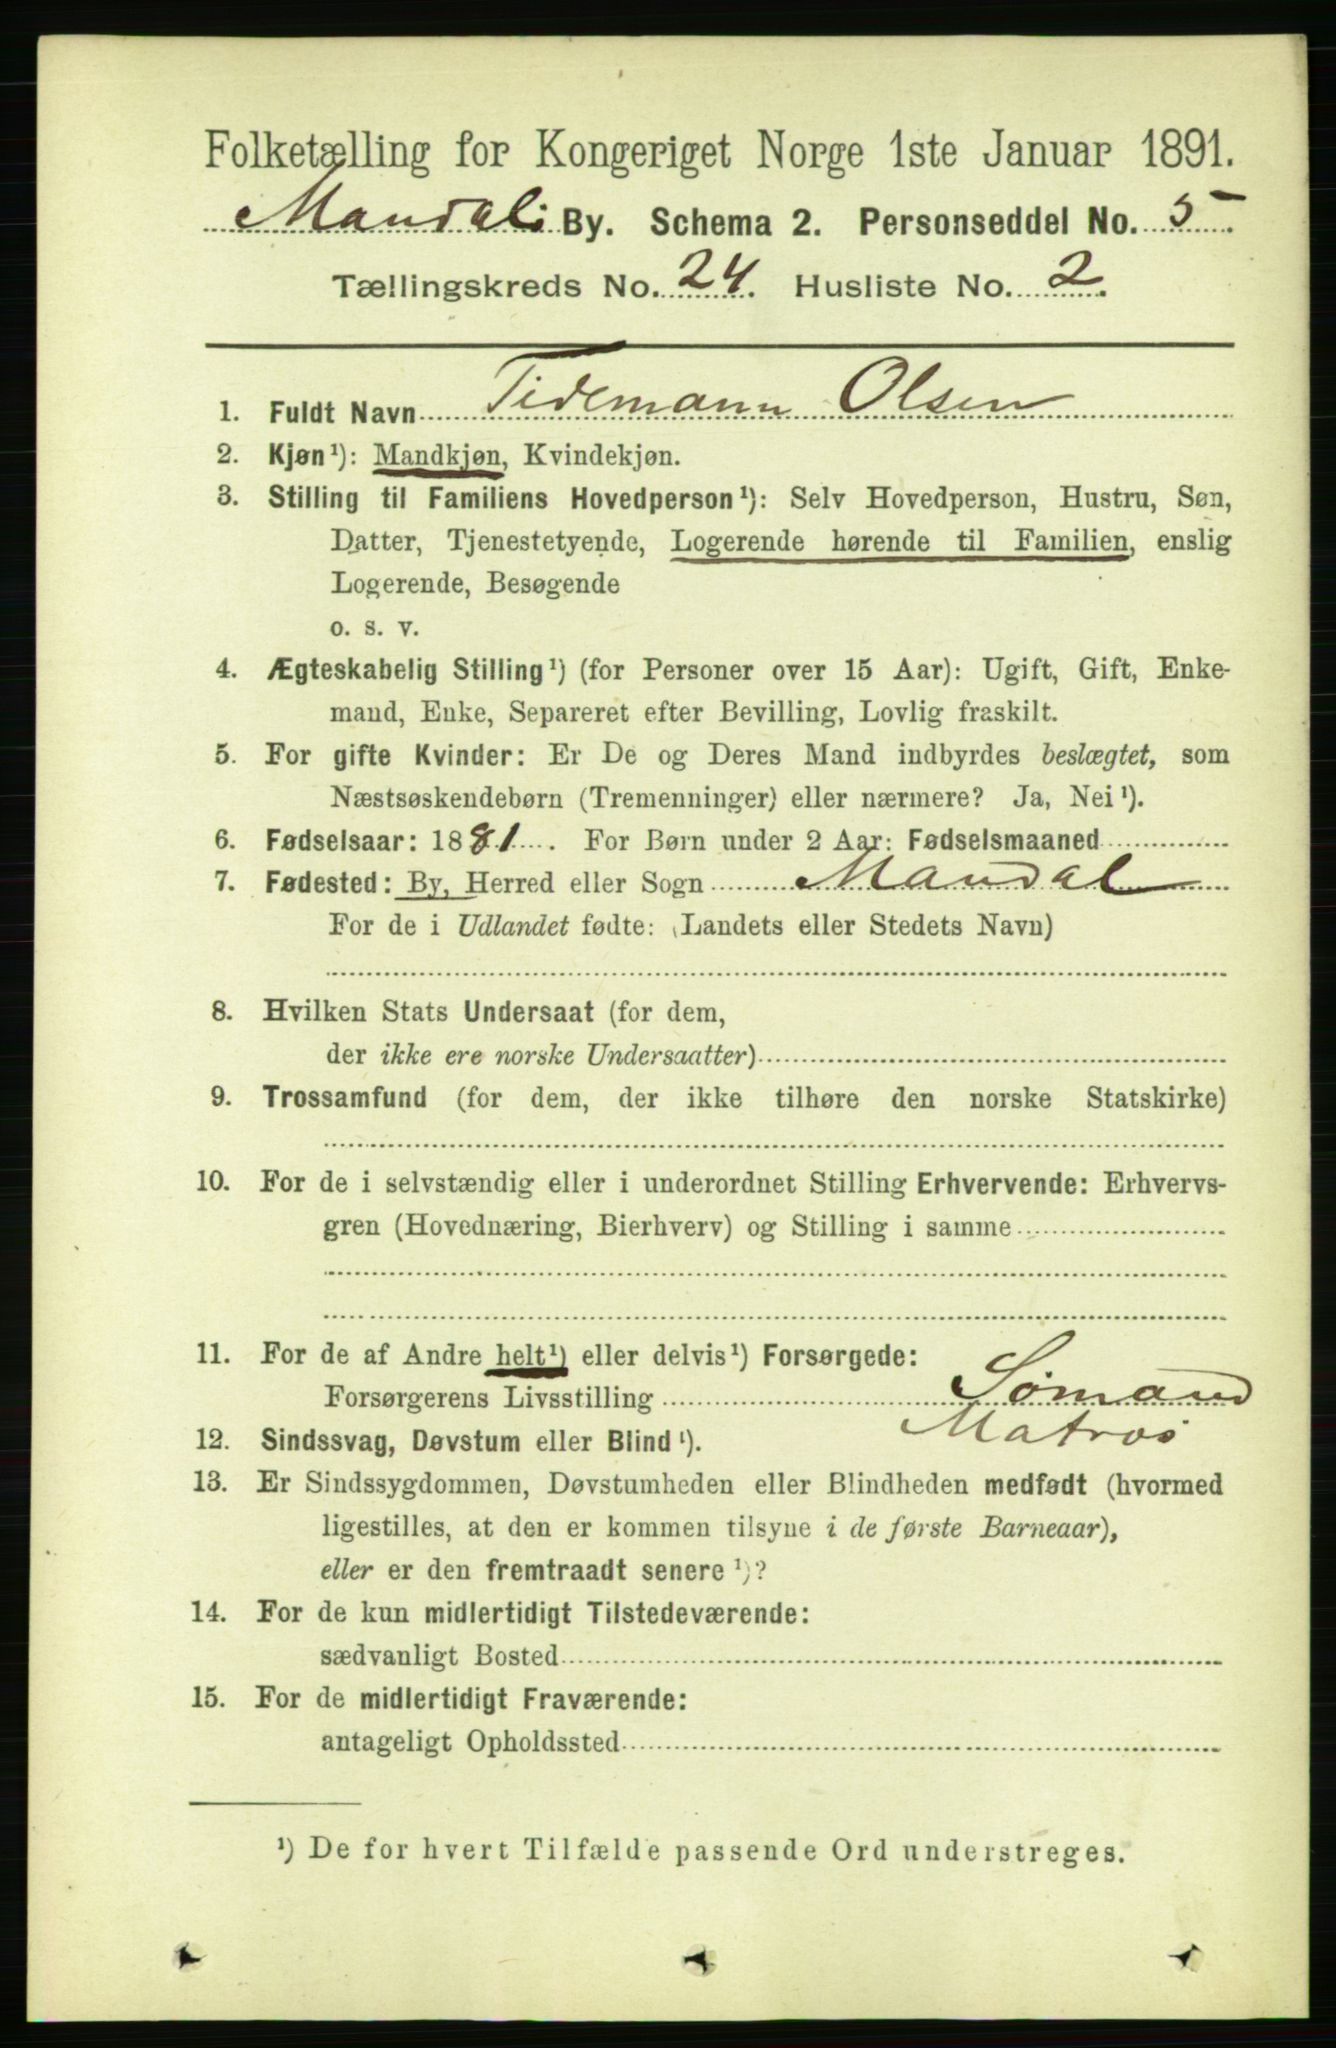 Folketælling for Kongeriget Norge 1ste Januar 1891.
Mandal: By. Schema 2. Personseddel No. 5
Tællingskreds No. 24. Husliste No. 2.
1. Fuldt Navn Tidemann Olsen
2. Kjøn¹): Mandkjøn, Kvindekjøn.
3. Stilling til Familiens Hovedperson¹): Selv Hovedperson, Hustru, Søn,
Datter, Tjenestetyende, Logerende hørende til Familien, enslig
Logerende, Besøgende
o. s. v.
4. Ægteskabelig Stilling¹) (for Personer over 15 Aar): Ugift, Gift, Enke-
mand, Enke, Separeret efter Bevilling, Lovlig fraskilt.
5. For gifte Kvinder: Er De og Deres Mand indbyrdes beslægtet, som
Næstsøskendebørn (Tremenninger) eller nærmere? Ja, Nei¹).
6. Fødselsaar: 1881. For Børn under 2 Aar: Fødselsmaaned
7. Fødested: By, Herred eller Sogn Mandal
For de i Udlandet fødte: (Landets eller Stedets Navn)
8. Hvilken Stats Undersaat (for dem,
der ikke ere norske Undersaatter)
9. Trossamfund (for dem, der ikke tilhøre den norske Statskirke)
10. For de i selvstændig eller i underordnet Stilling Erhvervende: Erhvervs-
gren (Hovednæring, Bierhverv) og Stilling i samme
11. For de af Andre helt¹) eller delvis¹) Forsørgede:
Forsørgerens Livsstilling Sömand
Matros
12. Sindssvag, Døvstum eller Blind¹).
13. Er Sindssygdommen, Døvstumheden eller Blindheden medfødt (hvormed
ligestilles, at den er kommen tilsyne i de første Barneaar),
eller er den fremtraadt senere¹)?
14. For de kun midlertidigt Tilstedeværende:
sædvanligt Bosted
15. For de midlertidigt Fraværende:
antageligt Opholdssted
¹) De for hvert Tilfælde passende Ord understreges.